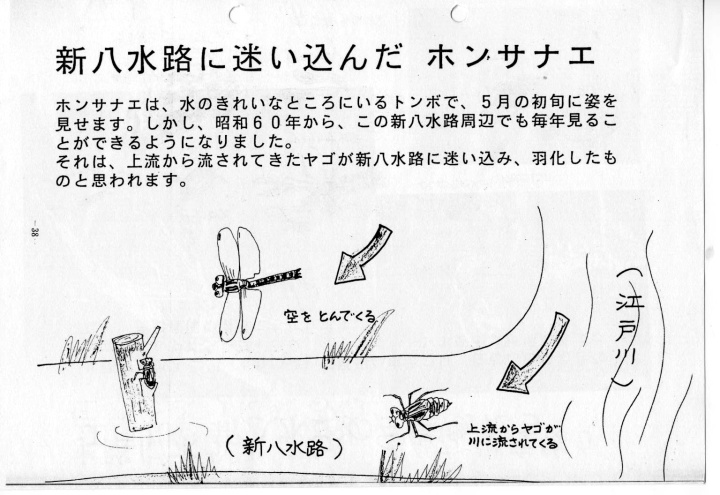 新八水路に迷い込んだ ホンサナエ
ホンサナエは、水のきれいなところにいるトンボで、５月の初旬に姿を
見せます。しかし、昭和６０年から、この新八水路周辺でも毎年見るこ
とができるようになりました。
それは、上流から流されてきたヤゴが新八水路に迷い込み、羽化したも
のと思われます。
-38-
空を とんでくる
(江戸川)
上流からヤゴが
川に流されてくる
(新八水路)